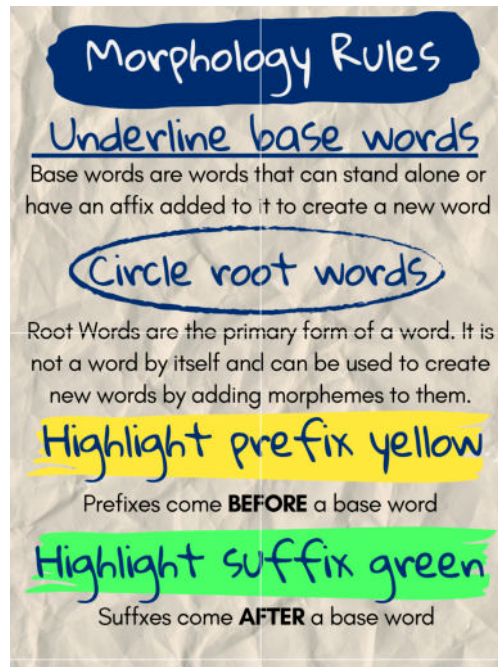 Morphology Rules
Underline base words
Base words are words that can stand alone or
have an affix added to it to create a new word
Circle root words
Root Words are the primary form of a word. It is
not a word by itself and can be used to create
new words by adding morphemes to them.
Highlight prefix yellow
Prefixes come BEFORE a base word
Highlight suffix green
Suffxes come AFTER a base word